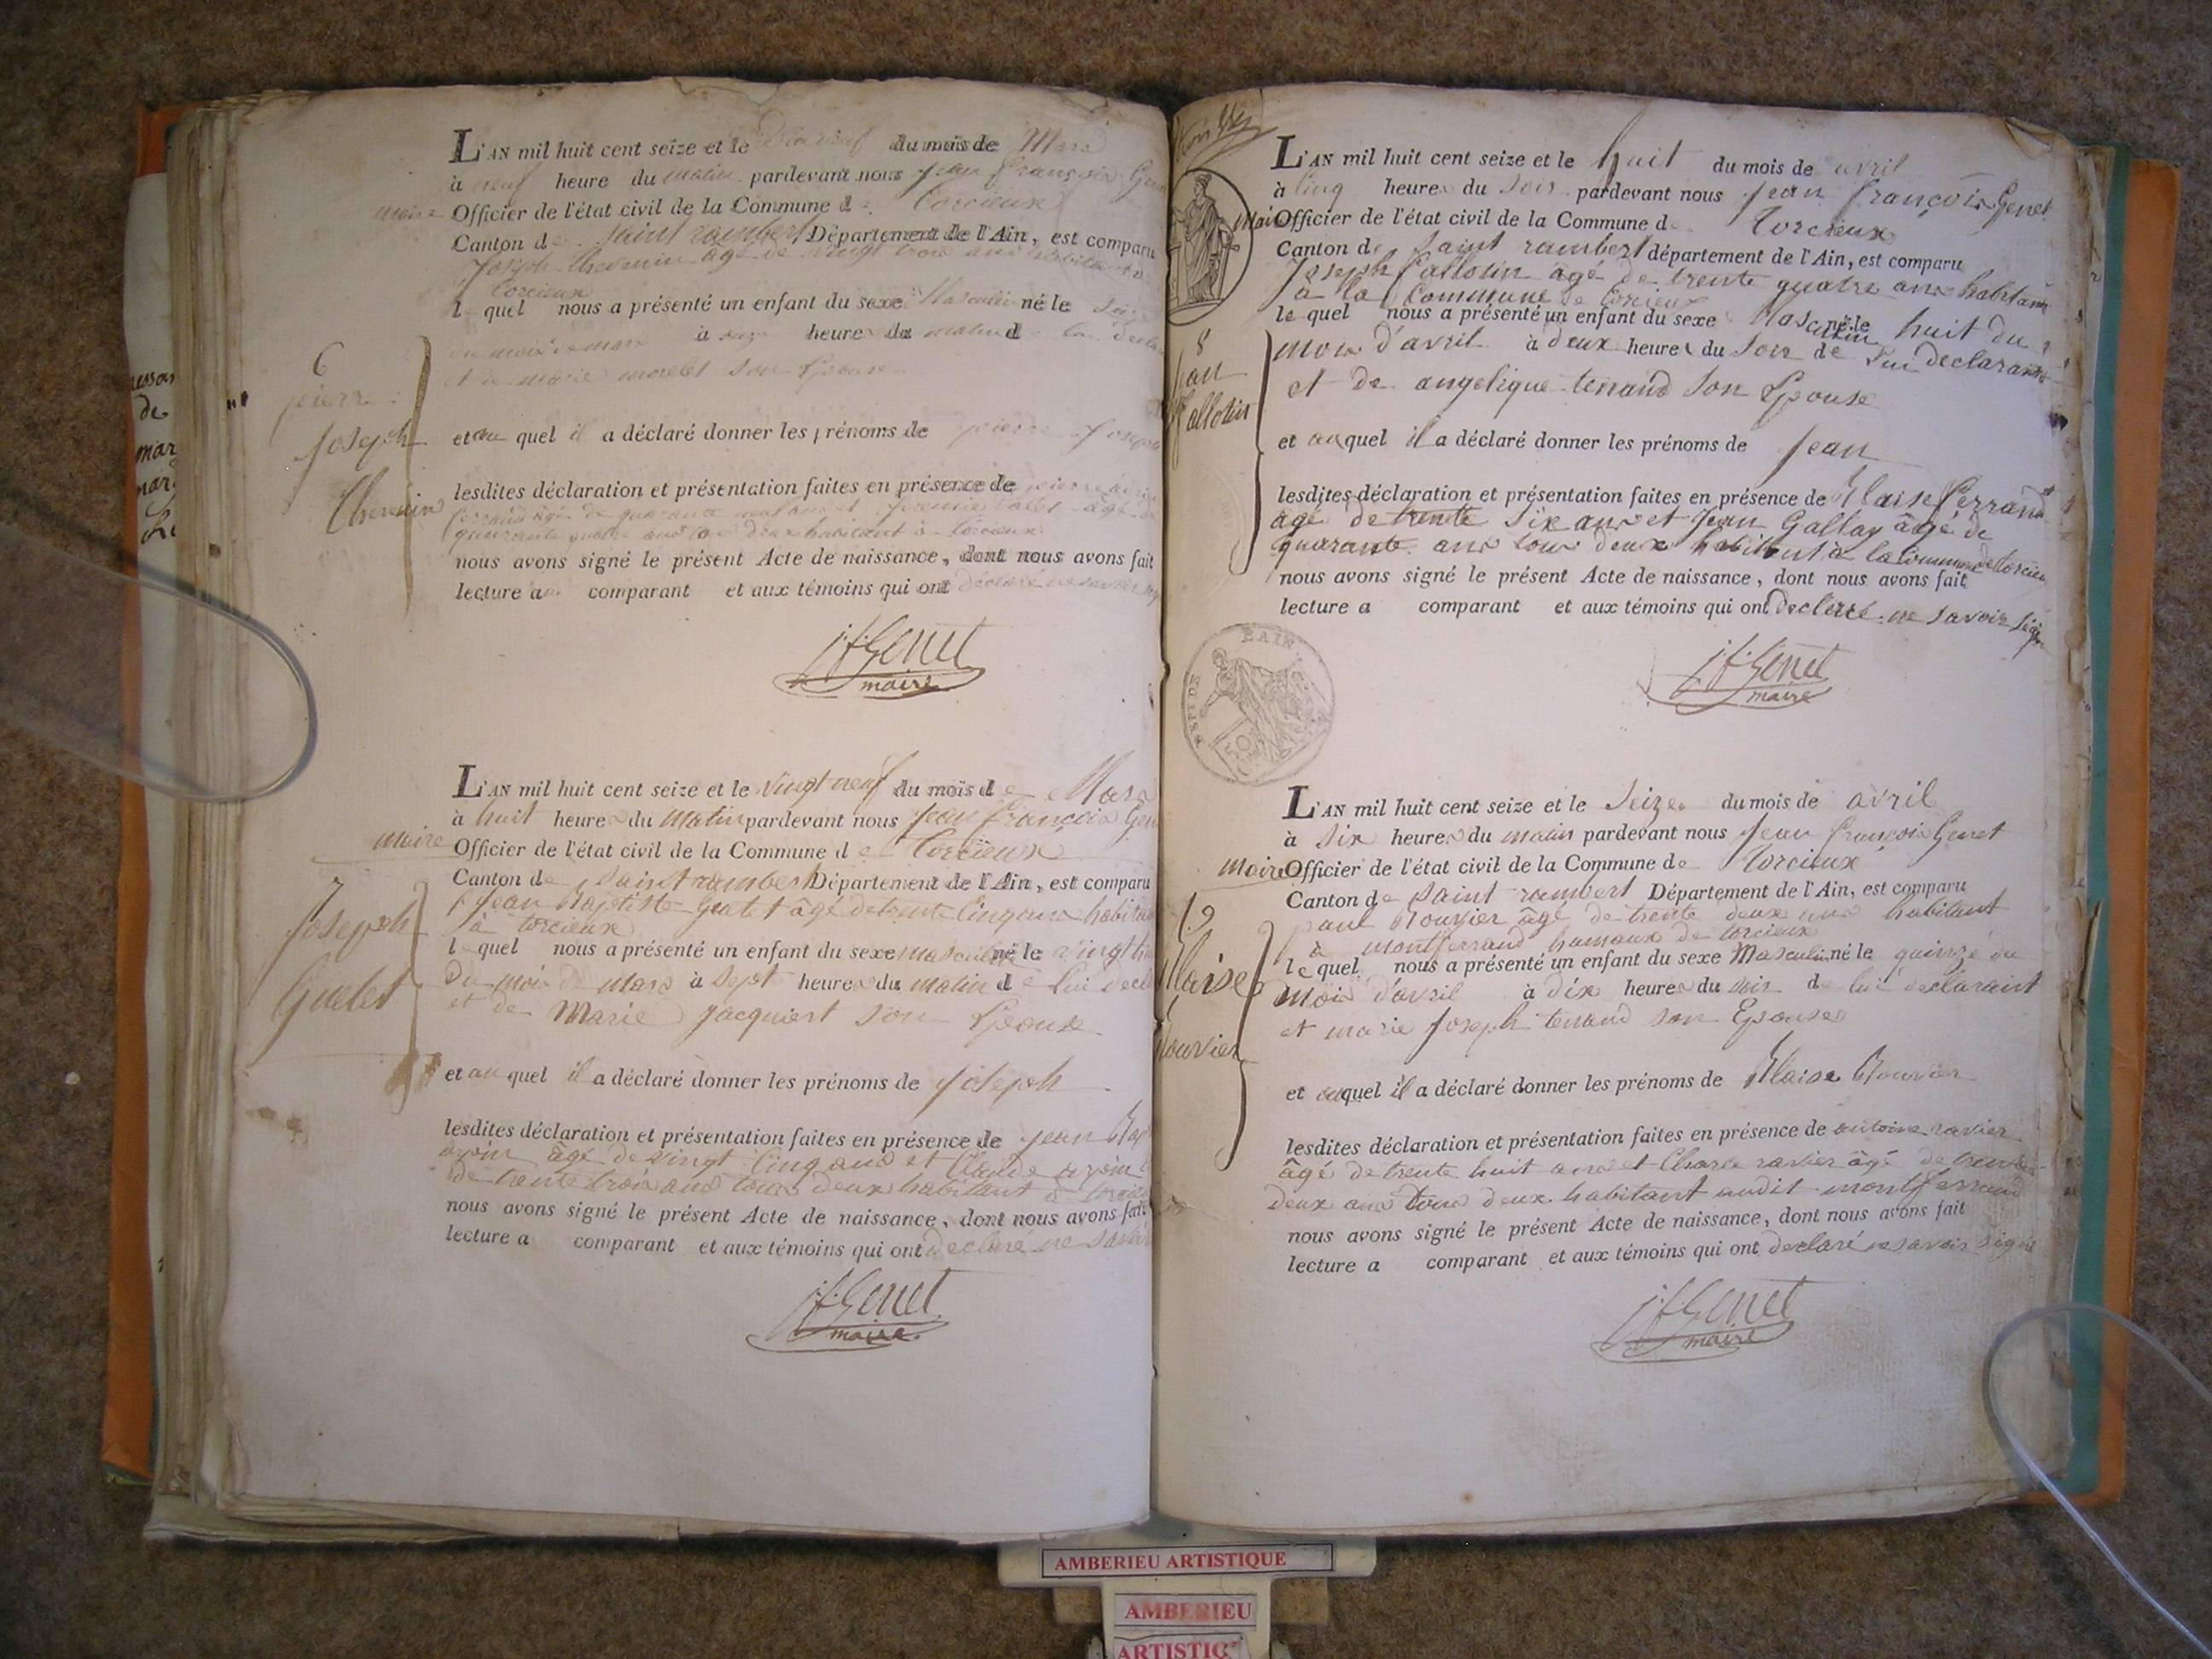 L'AN mil huit cent seize et le du mois de Mars
à neuf heure du matin pardevant nous jean françois
maire Officier de l'état civil de la Commune d Torcieux
Canton de Saint rambert Département de l'Ain, est comparu
Joseph âgé de vingt trois ans habitant à
Torcieux
l quel nous a présenté un enfant du sexe Masculin né le
du mois de mars à onze heure du matin d
et de marie morelet son Epouse
6
pierre
Joseph
et au quel il a déclaré donner les prénoms de pierre Joseph
lesdites déclaration et présentation faites en présence de pierre
ferrand âgé de quarante neuf ans et âgé de
quarante quatre ans tous deux habitant à torcieux
nous avons signé le présent Acte de naissance, dont nous avons fait
lecture au comparant et aux témoins qui ont déclaré ne savoir
jf Genet
maire
L'AN mil huit cent seize et le vingt neuf du mois de Mars
à huit heures du matin pardevant nous jean françois Gen
maire Officier de l'état civil de la Commune de Torcieux
Canton de Saint rambert Département de l'Ain, est comparu
jean Baptiste âgé de trente Cinq ans habitant
à torcieux
l quel nous a présenté un enfant du sexe masculin né le vingt
du mois de mars à sept heures du matin de lui
et de Marie jacquiert son Epouse
7
Joseph
et au quel il a déclaré donner les prénoms de joseph
lesdites déclaration et présentation faites en présence de jean Bap
âgé de vingt Cinq ans et Claude
de trente trois ans tous deux habitant à
nous avons signé le présent Acte de naissance, dont nous avons fait
lecture a comparant et aux témoins qui ont declaré ne savoir
jf Genet
maire
L'AN mil huit cent seize et le huit du mois de avril
à Cinq heures du soir pardevant nous jean françois Genet
maire Officier de l'état civil de la Commune de Torcieux
Canton de Saint rambert département de l'Ain, est comparu
Joseph Pallotin âgé de trente quatre ans habitant
à la Commune de torcieux
le quel nous a présenté un enfant du sexe Masculin né le huit du
mois d'avril à deux heures du soir de lui declarant
et de angelique tenand son Epouse
8
jean
Pallotin
et au quel il a déclaré donner les prénoms de jean
lesdites déclaration et présentation faites en présence de Blaise ferrand
âgé de trente six ans et jean Gallay âgé de
quarante ans tous deux habitant à la Commune de torcieu
nous avons signé le présent Acte de naissance, dont nous avons fait
lecture a comparant et aux témoins qui ont declaré ne savoir
jf Genet
maire
L'AIN
50
L'AN mil huit cent seize et le Seize du mois de avril
à six heures du matin pardevant nous jean françois Genet
maire Officier de l'état civil de la Commune de Torcieux
Canton de Saint rambert Département de l'Ain, est comparu
paul Bouvier âgé de trente deux ans habitant
à montferrand hamaux de torcieux
le quel nous a présenté un enfant du sexe Masculin né le quinze du
mois d'avril à dix heures du soir de lui declarant
et marie joseph tenand son Epouse
9
Blaise
Bouvier
et auquel il a déclaré donner les prénoms de Blaise Bouvier
lesdites déclaration et présentation faites en présence de antoine ravier
âgé de trente huit ans et Charle ravier âgé de trente
deux ans tous deux habitant audit montferrand
nous avons signé le présent Acte de naissance, dont nous avons fait
lecture a comparant et aux témoins qui ont declaré ne savoir signé
jf Genet
maire
AMBERIEU ARTISTIQUE
AMBERIEU
ARTISTIQ